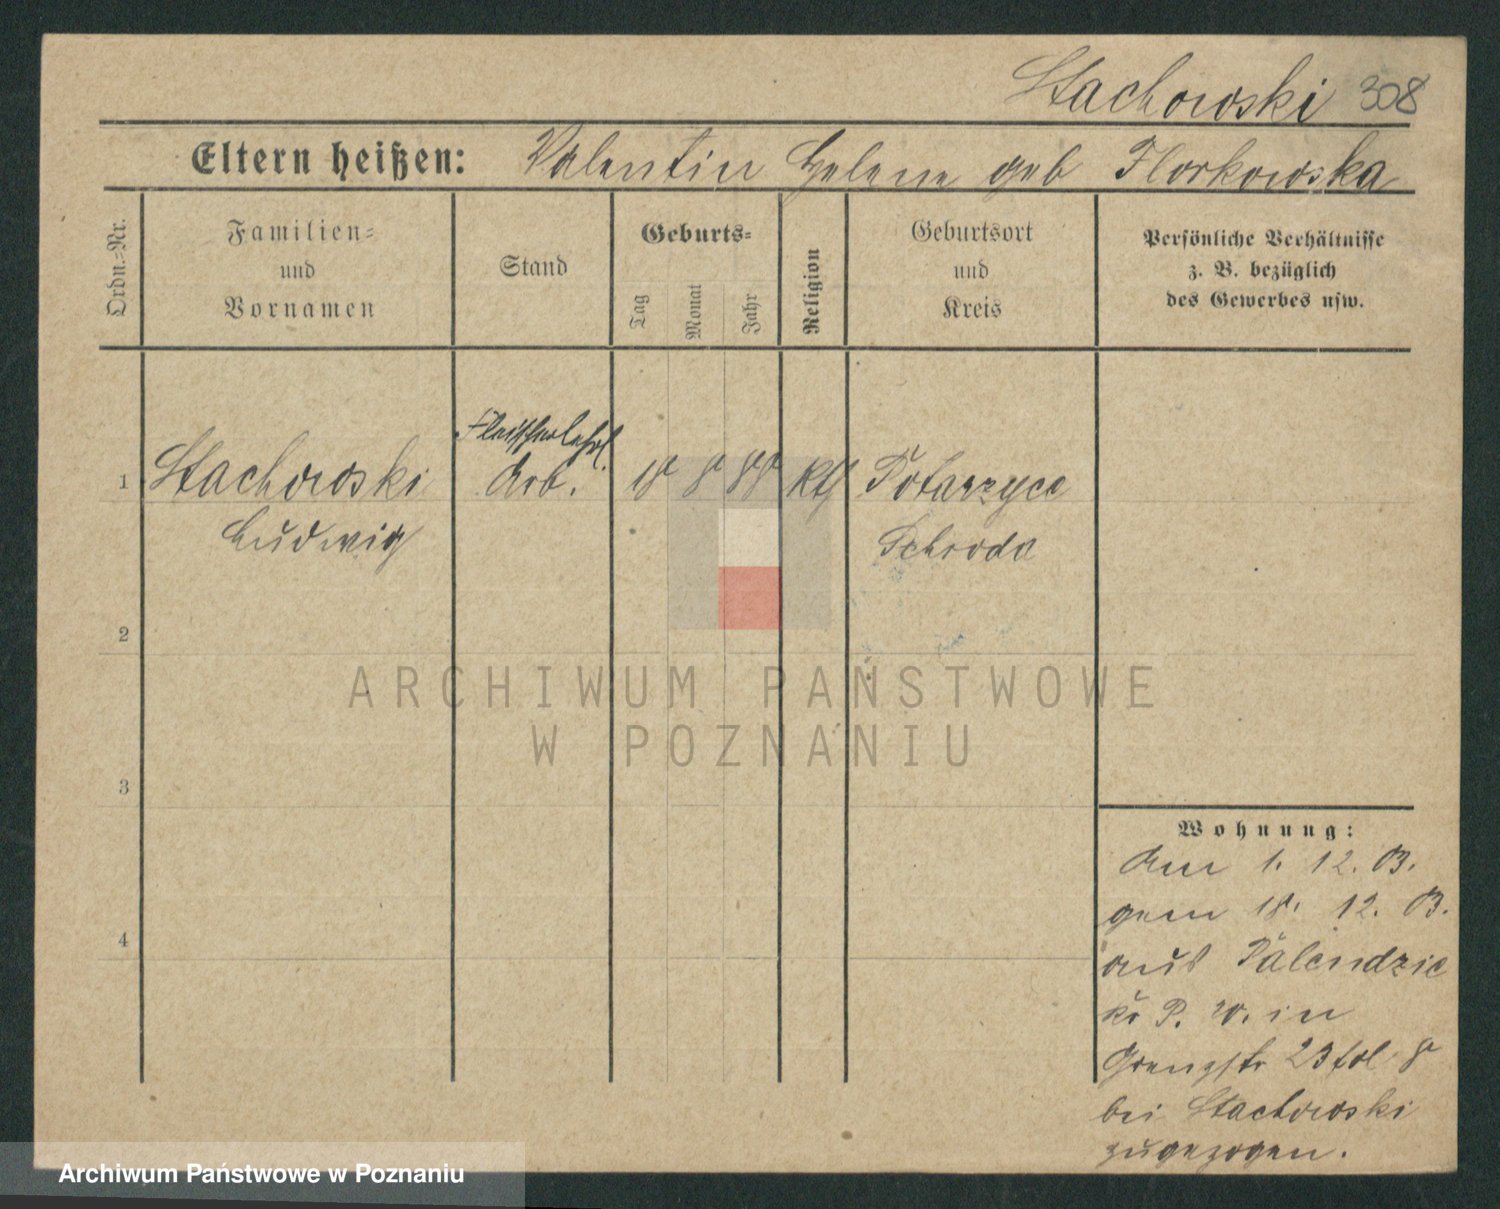 Stachowski 308
Eltern heißen: Valentin Helene geb Florkowska
Ordn.-Nr.
Familien-
und
Vornamen
Stand
Geburts-
Tag
Monat
Jahr
Religion
Geburtsort
und
Kreis
Persönliche Verhältnisse
z. B. bezüglich
des Gewerbes usw.
Fleischerlehrl.
1 Stachowski Arb. 18 8 88 kth Potarzyce
Ludwig Schroda
2
3
4
Wohnung:
Am 1. 12. 03.
gem 18. 12. 03.
aus Palendzie
Kr P. W. in
Grenzstr 23 fol 8
bei Stachowski
zugezogen.
ARCHIWUM PAŃSTWOWE
W POZNANIU
Archiwum Państwowe w Poznaniu